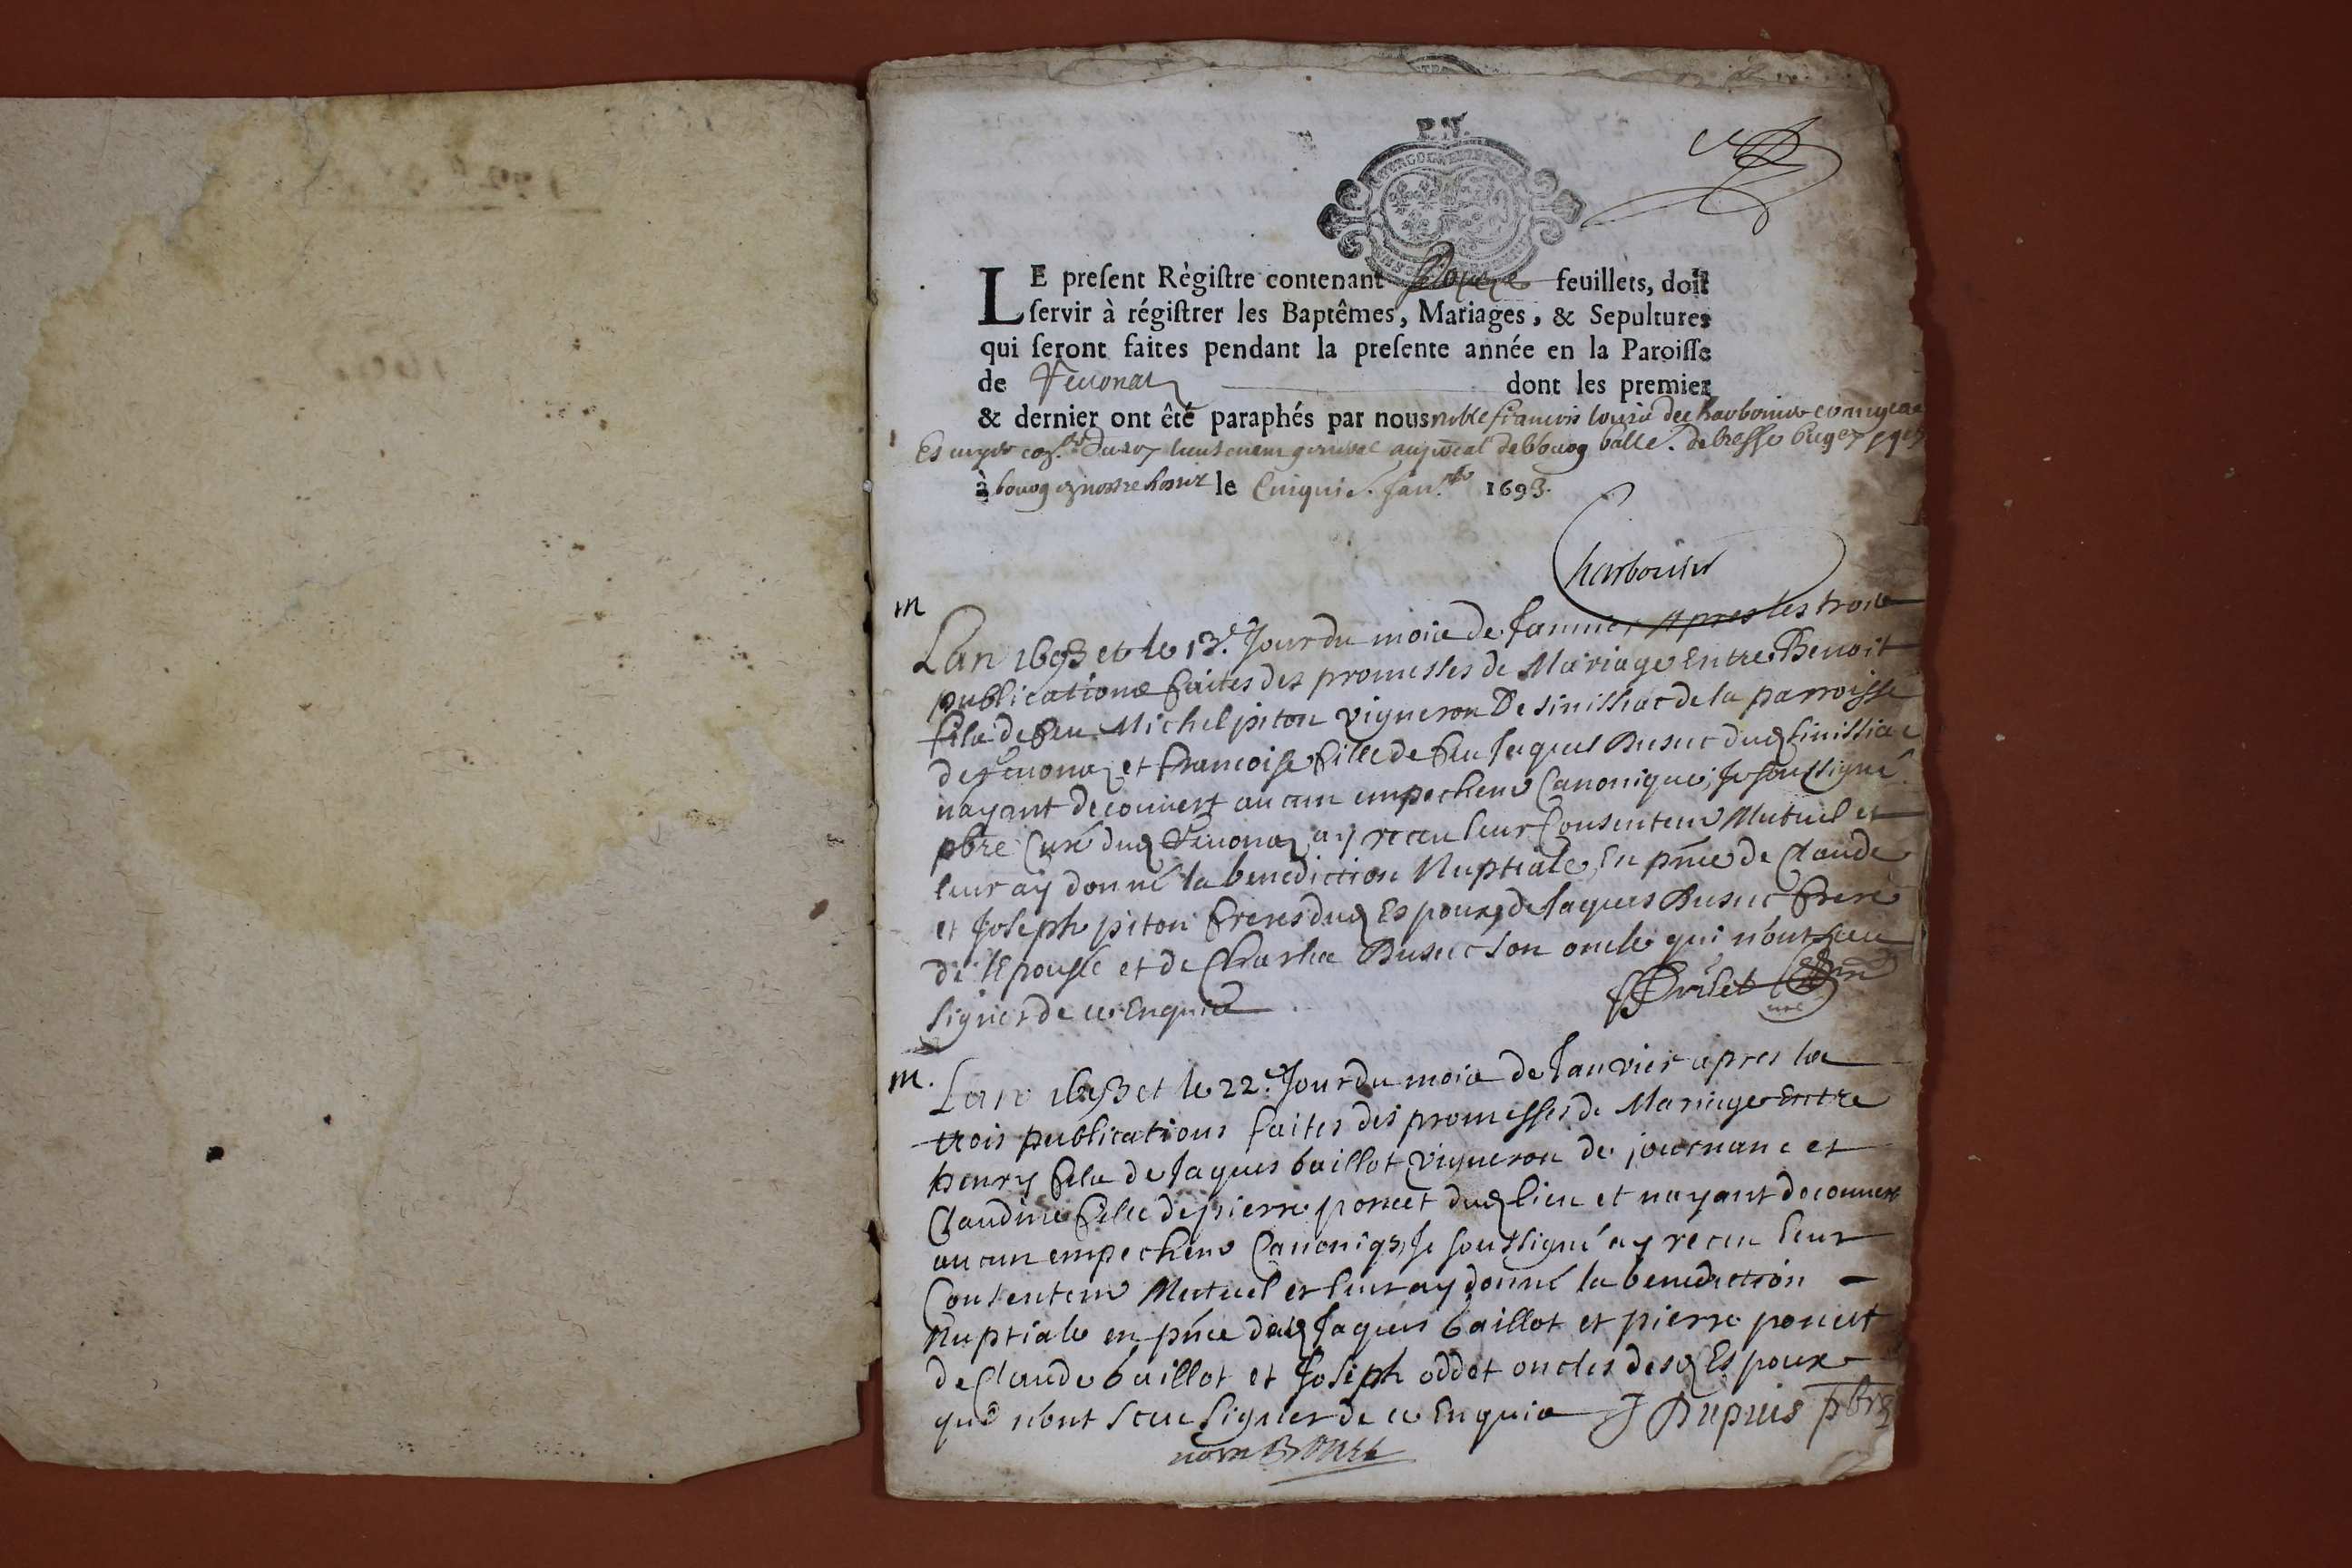 P. N.
LE preſent Régiſtre contenant feuillets, doit
ſervir à régiſtrer les Baptêmes, Mariages, & Sepultures
qui ſeront faites pendant la preſente année en la Paroiſſe
de dont les premier
& dernier ont êté paraphés par nous noble francois
lieutenant general de bresse
à le Janv. 1693.
Charbonier
m
Lan 1693 et le 13.e Jour du mois de Janvier Apres les trois
publications faites des promesses de Mariage Entre Benoit
fils de feu Michel piton vigneron De sinissiat de la parroisse
de et francoise fille de feu Jaques Busuc dud sinissiat
nayant decouvert aucun empechem Canonique, Je soussigné
pbre Curé dud ay receu leur Consentem Mutuel et
leur ay donné la benediction Nuptiale, En pnce de Claude
et Joseph piton freres dud Espoux, de Jaques Busuc frere
de lEpouse et de Charles Busuc son oncle qui n'ont sceu
signer de ce Enquis
m.
Lan 1693 et le 22.e Jour du mois de Janvier apres les
trois publications faites des promesses de Mariage Entre
henry fils de Jaques baillot vigneron de journanc et
Claudine fille de pierre poncet dud lieu et nayant decouvert
aucun empechem Canoniq3, Je soussigné ay receu leur
Consentem Mutuel et leur ay donné la benediction
Nuptiale en pnce desd Jaques baillot et pierre poncet
de Claude baillot et Joseph oddet oncles desd Espoux
qui n'ont sceu signer de ce Enquis J Dupuis pbre